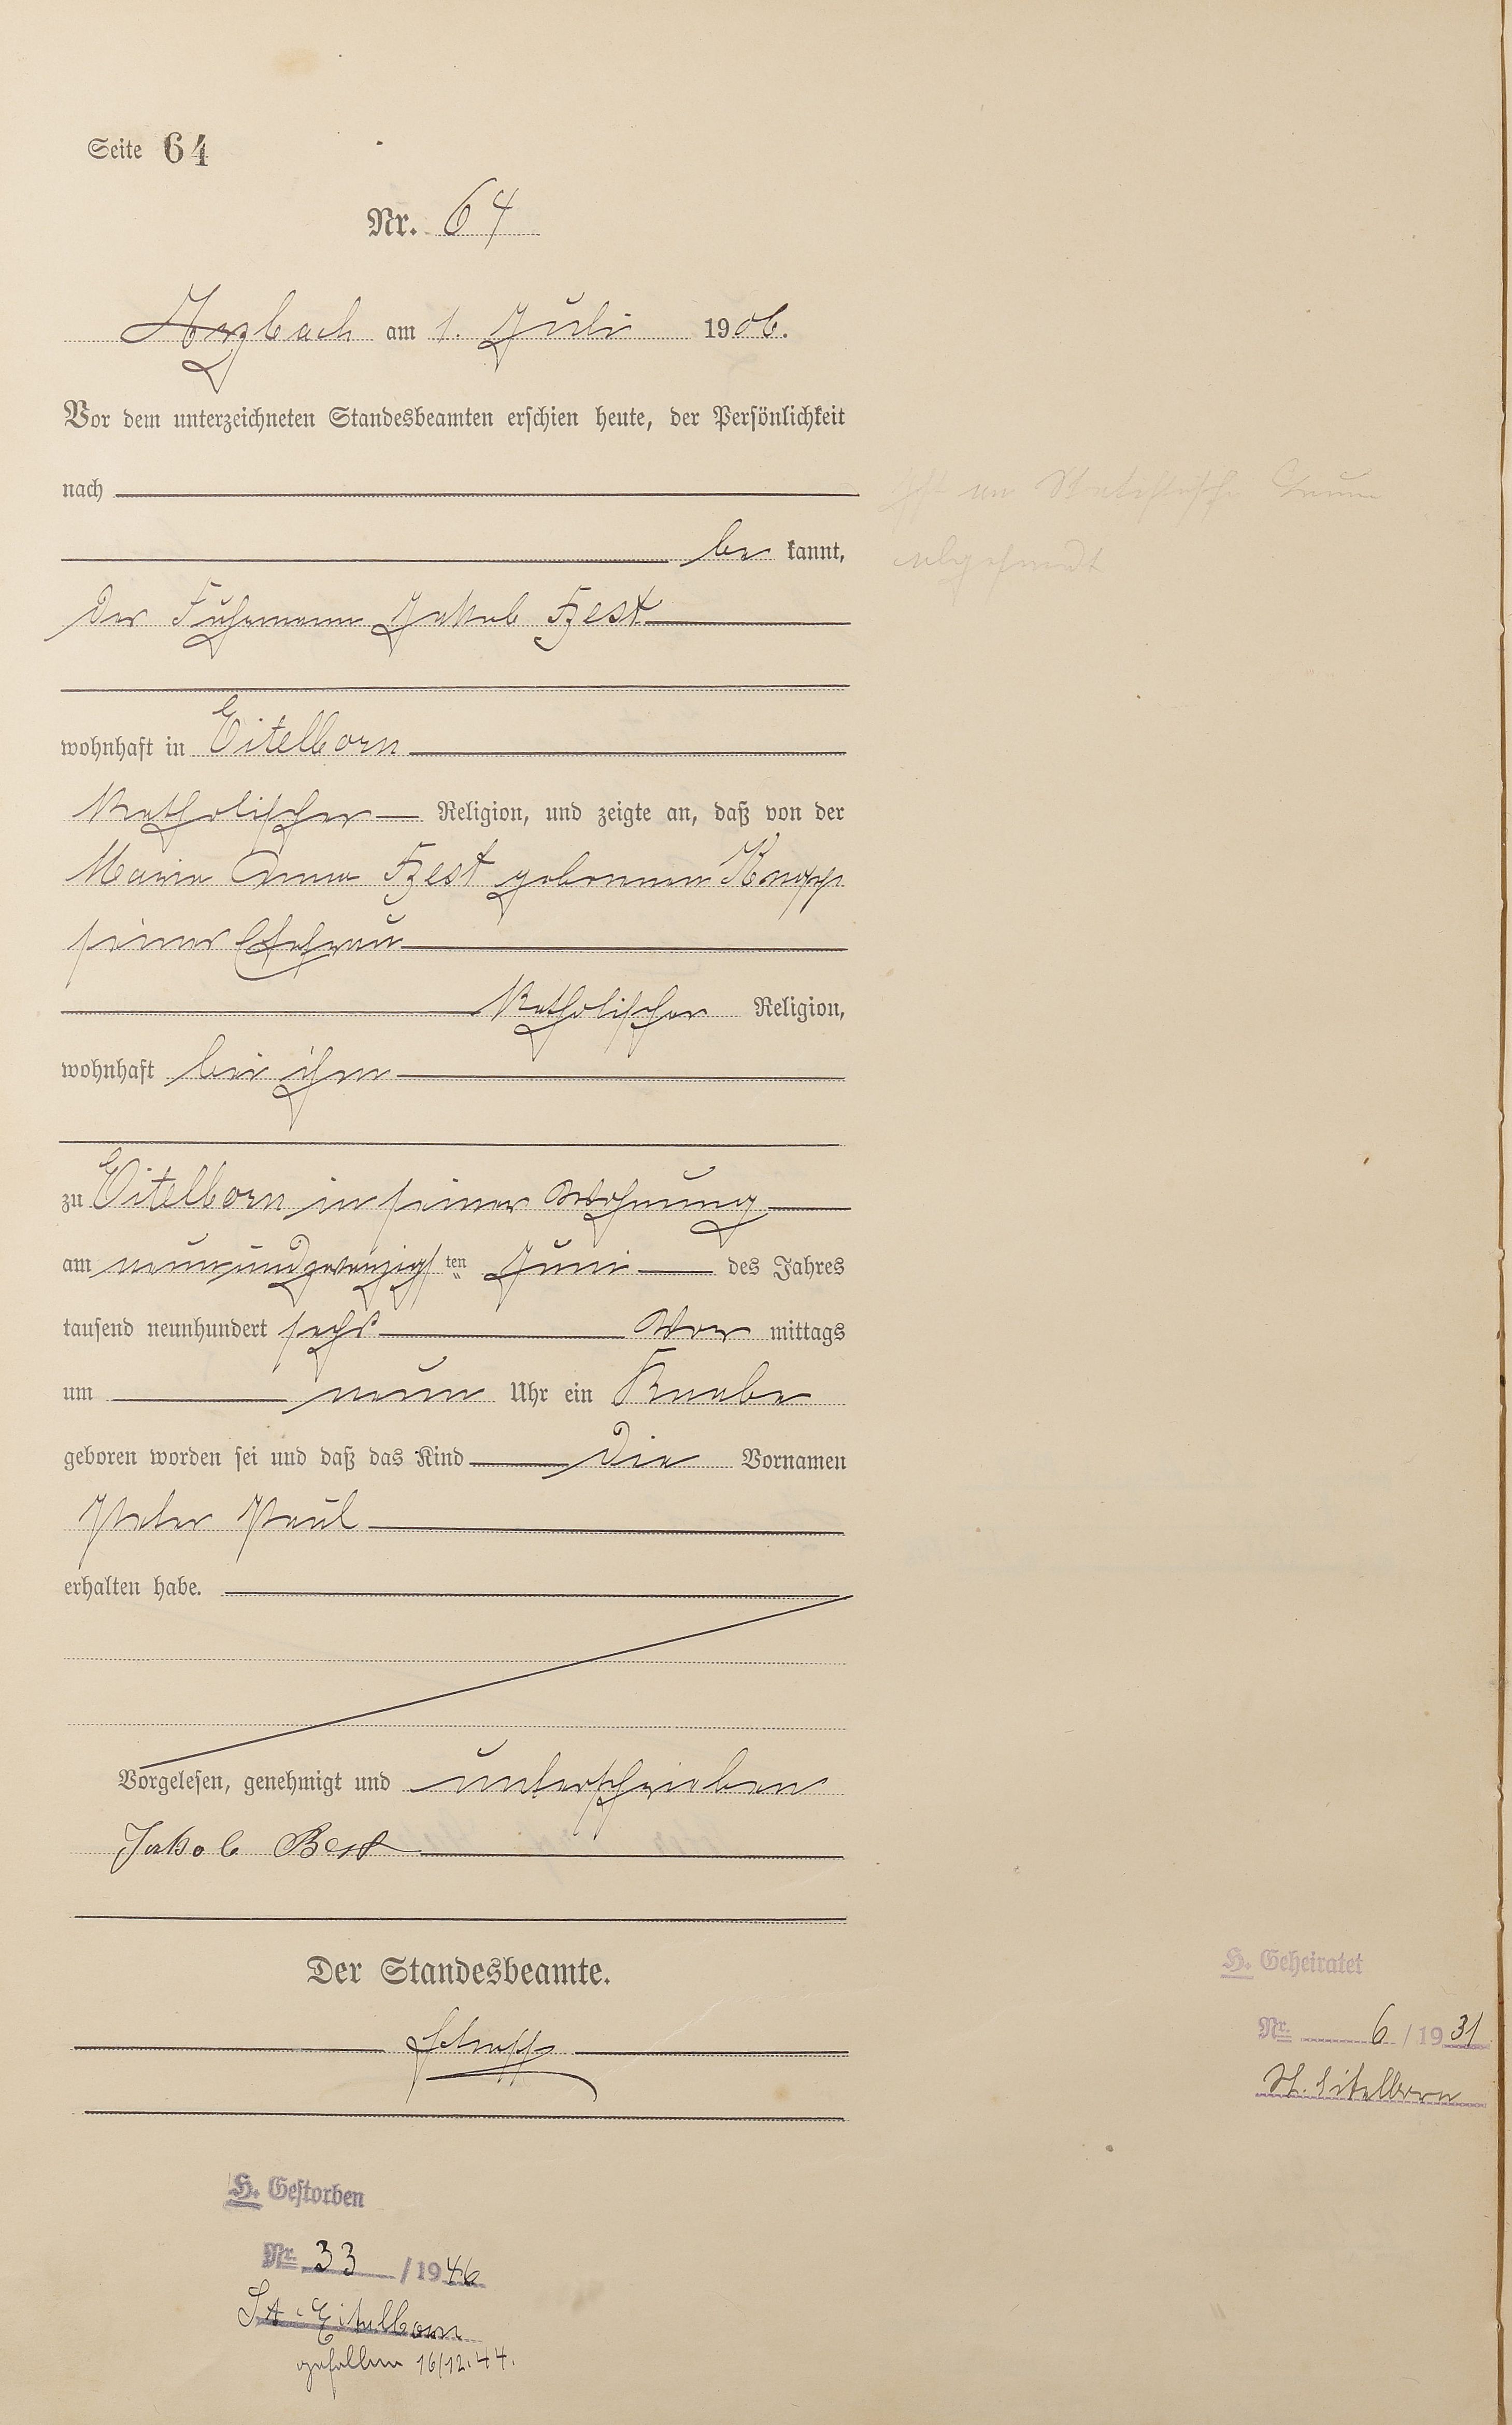 Seite 64
Nr. 64
Arzbach am 1. Juli 1906.
Vor dem unterzeichneten Standesbeamten erschien heute, der Persönlichkeit
nach
be kannt,
der Fuhrmann Jakob Best
wohnhaft in Eitelborn
katholischer Religion, und zeigte an, daß von der
Maria Anna Best geborenen Knopp
seiner Ehefrau
katholischer Religion,
wohnhaft bei ihm
zu Eitelborn in seiner Wohnung
am neunundzwanzigsten Juni des Jahres
tausend neunhundert sechs Vor mittags
um neun Uhr ein Knabe
geboren worden sei und daß das Kind die Vornamen
Peter Paul
erhalten habe.
Vorgelesen, genehmigt und unterschrieben
Jakob Best
Der Standesbeamte.
H. Geheiratet
Nr. 6 / 1931
St. Eitelborn
H. Gestorben
Nr. 33 / 1946
St. Eitelborn
gefallen 16/12.44.